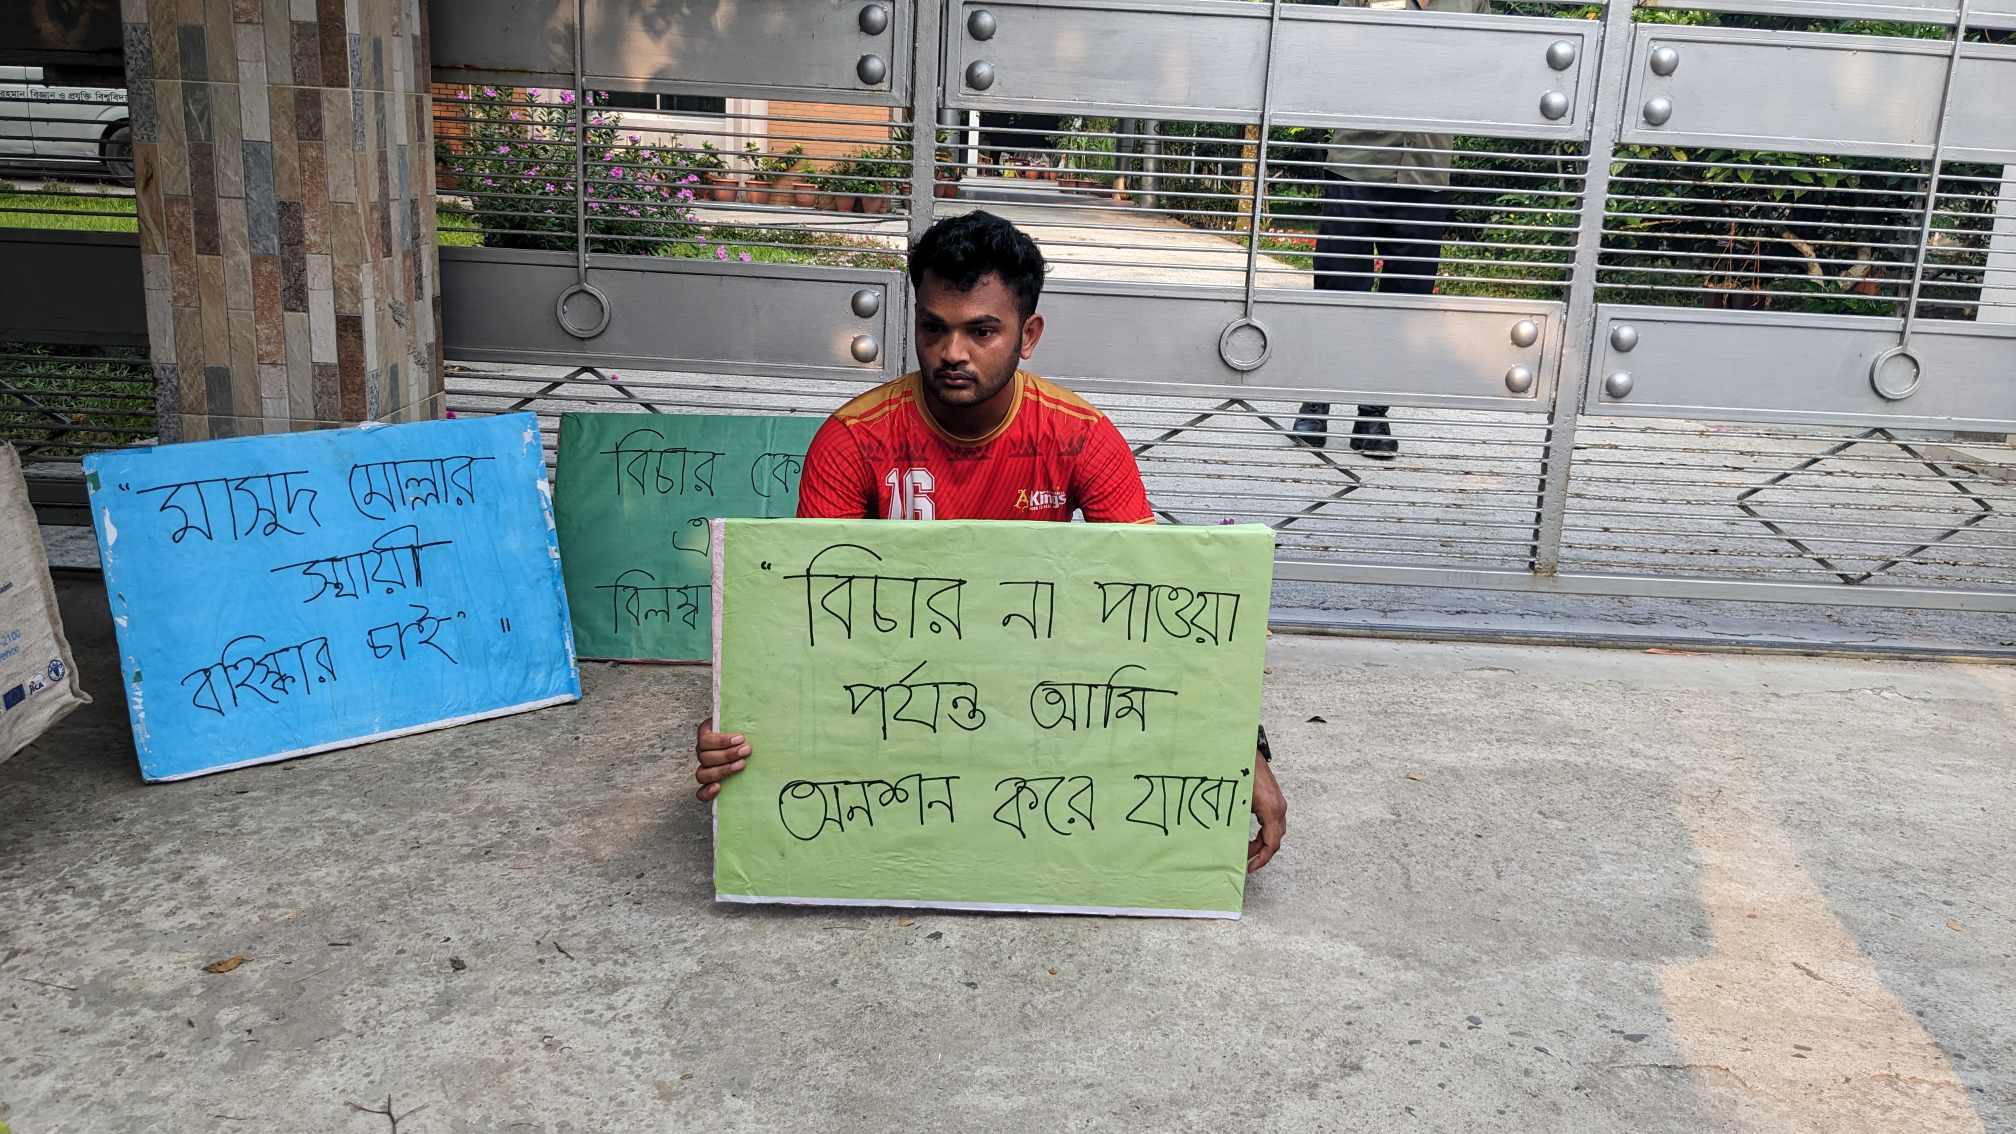 রহমান বিজ্ঞান ও প্রযুক্তি বিশ্ববিদ্য
"মাসুদ মোল্লার
স্থায়ী
বহিস্কার চাই"
বিচার কে
এ
বিলম্ব
16
Kings
"বিচার না পাওয়া
পর্যন্ত আমি
অনশন করে যাবো"
JICA